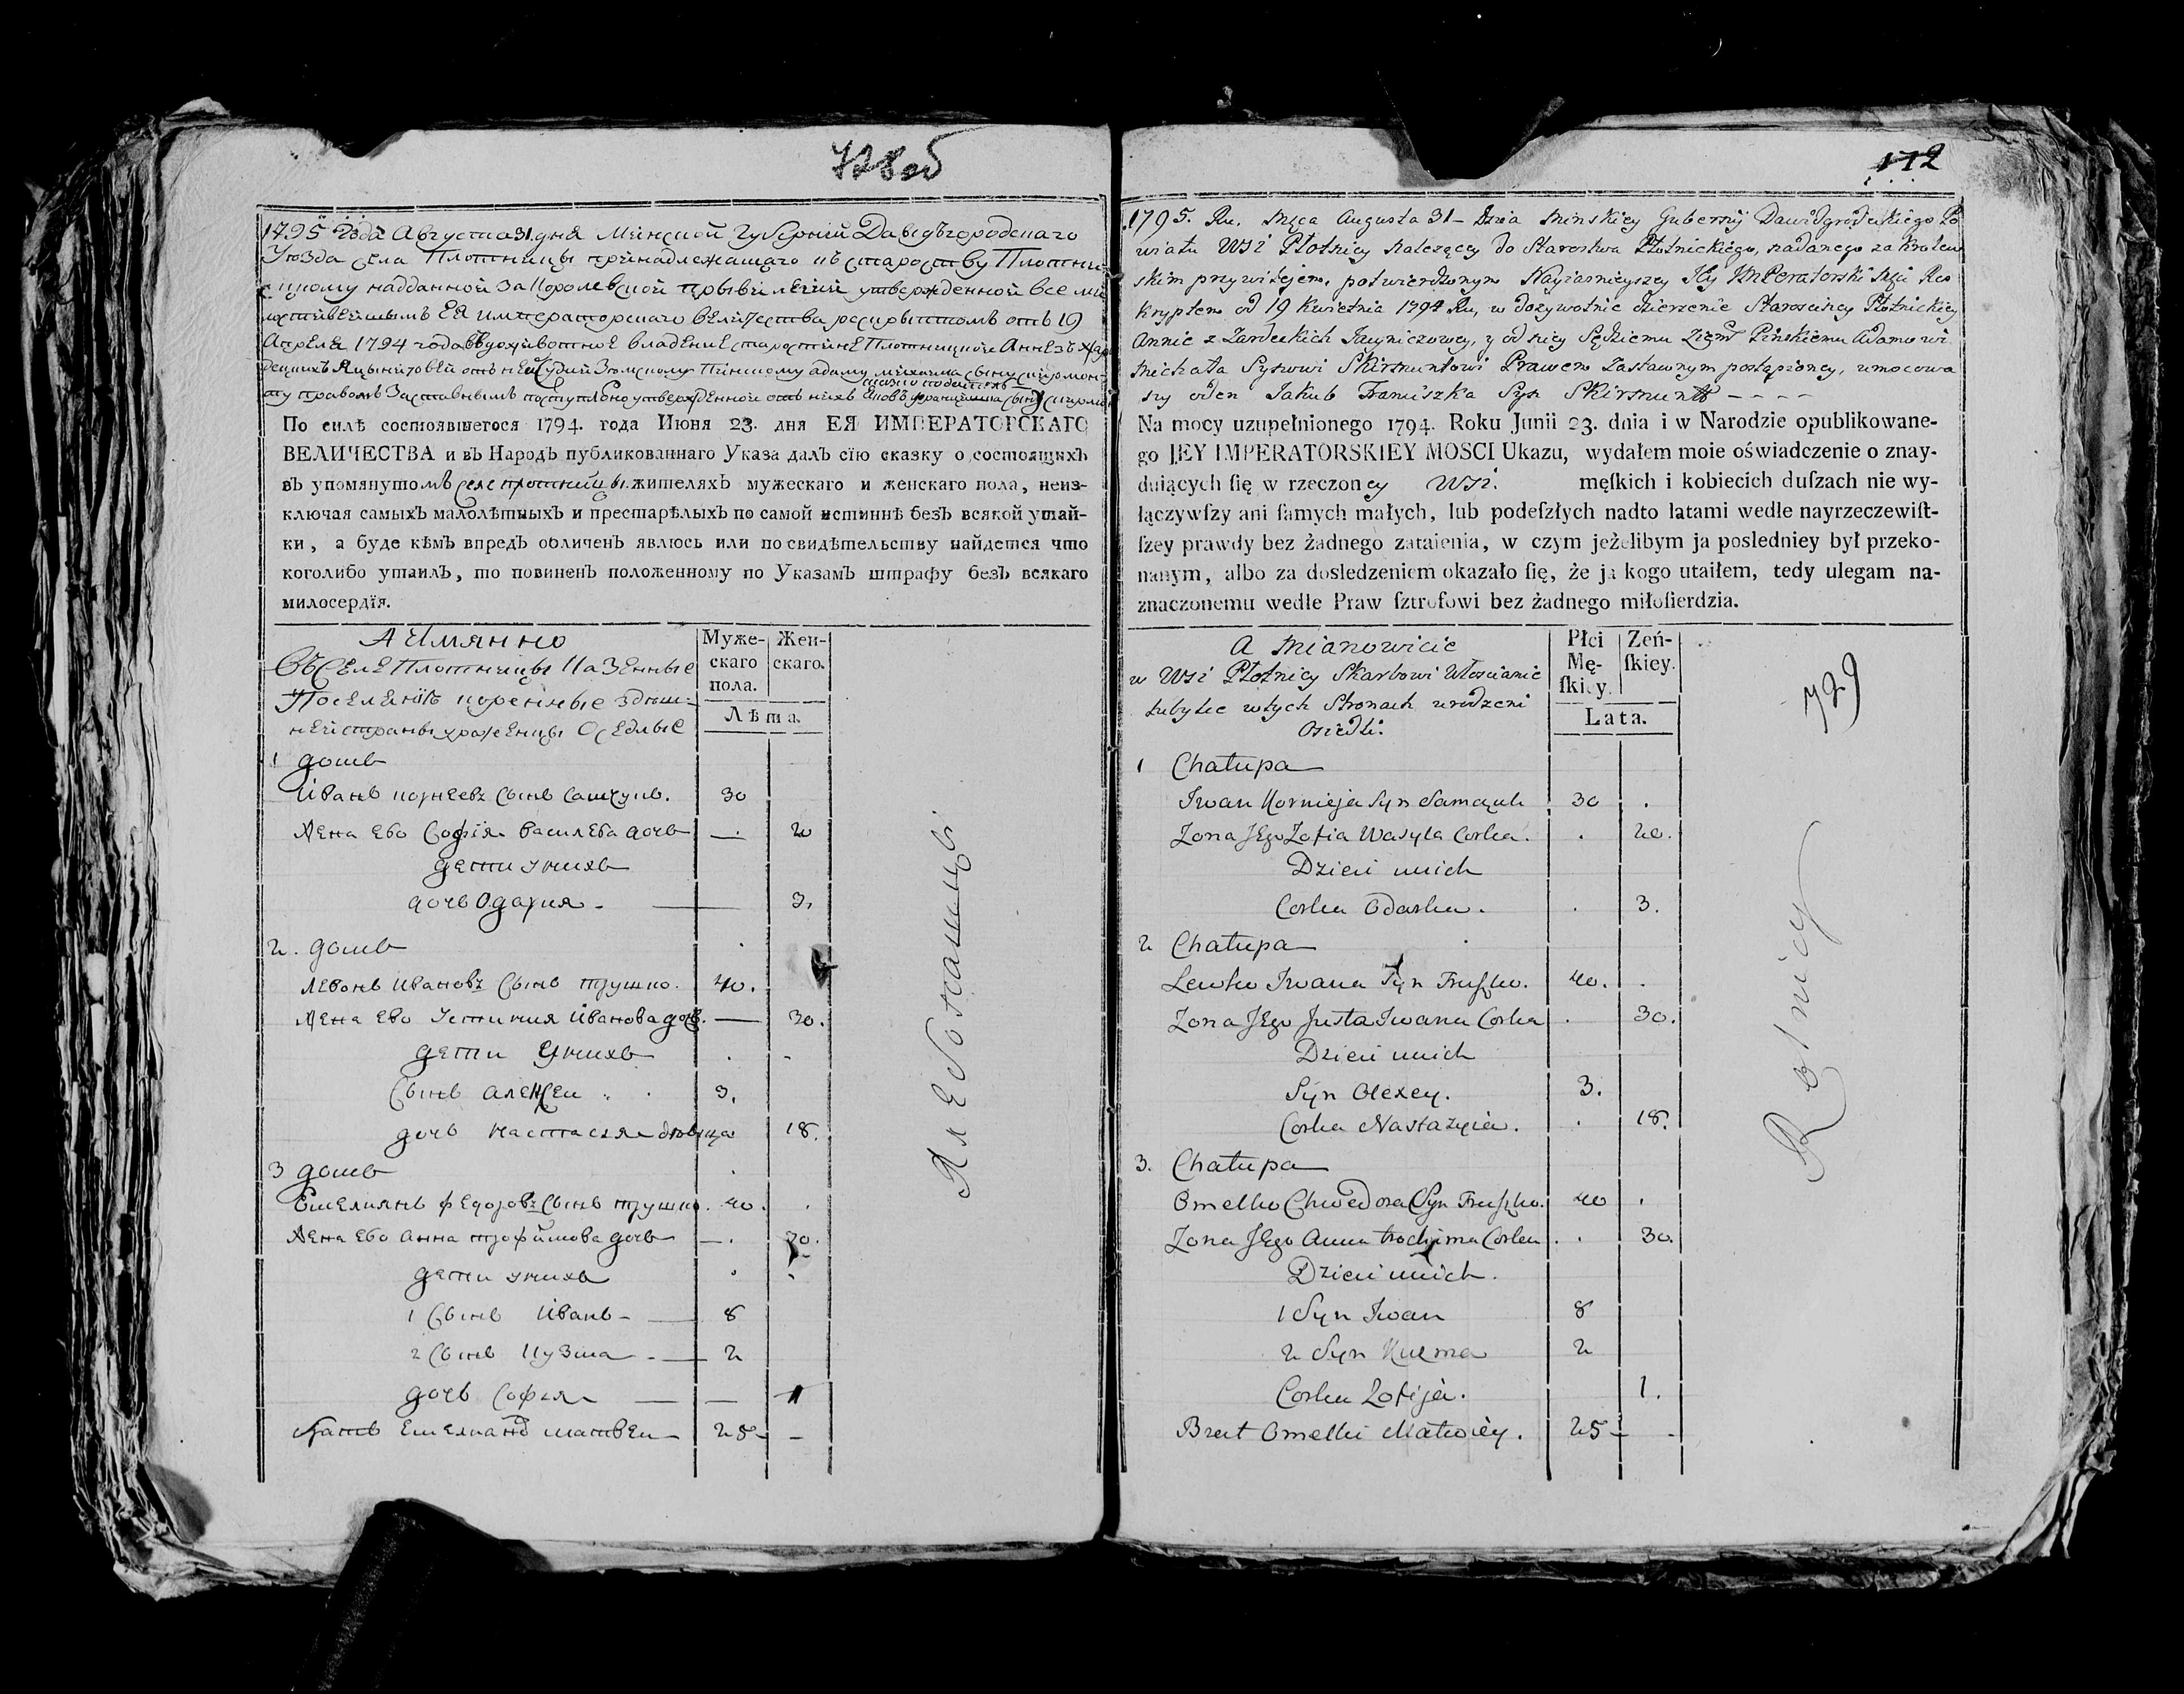 728об
1795 года Августа 31 дня Минской Губернии Давыдъгородскаго
Уѣзда села Плотницы принадлежащаго къ староству Плотни-
цкому надданной за Королевской привилегий утвержденной все ми-
лостивейшымъ ЕЯ императорскаго величества рескрыптомъ отъ 19
Апреля 1794 года въ дожывотное владение старостине Плотницкой Анне зъ
отъ ней судии Земскому Пинскому адаму михаила сыну скирмон-
ту правомъ Заставнымъ поступлено
По силѣ состоявшегося 1794. года Июня 23. дня ЕЯ ИМПЕРАТОРСКАГО
ВЕЛИЧЕСТВА и въ Народъ публикованнаго Указа далъ сїю сказку о состоящихъ
въ упомянутомъ селе плотницы жителяхъ мужескаго и женскаго пола, неиз-
ключая самыхъ малолѣтныхъ и престарѣлыхъ по самой истиннѣ безъ всякой утай-
ки, а буде кѣмъ впредъ обличенъ явлюсь или по свидѣтельству найдется что
коголибо утаилъ, то повиненъ положенному по Указамъ штрафу безъ всякаго
милосердїя.
А Имянно
Въ Селе Плотницы Казенные
Поселяне коренные здеш-
ней страны уроженцы Оседлые
Муже-
скаго
пола.
Жен-
скаго.
Лѣта.
1 домъ
Иванъ корнеевъ сынъ самчукъ. 30
Жена Ево София василева дочь — 20
дети у нихъ
дочь Одаркя. — 3.
2. домъ
Левонъ Ивановъ сынъ трушко. 40.
Жена Ево Устиния Иванова дочь. — 30.
дети у нихъ
сынъ алексеи 3.
дочь настасия девица 18.
3 домъ
Емелиянъ федоровъ сынъ трушко. 40.
Жена Ево анна трофимова дочь — 30.
дети у нихъ
1 сынъ Иванъ — 8
2 сынъ кузма — 2
дочь софия — 1
братъ Емелиана матвеи — 25 —
172
1795. Ru. Mca Augusta 31 Dnia Minskiey Gubernij Dawidgrodeckiego Po-
wiatu Wsi Płotnicy należącey do Starostwa Płotnickiego, nadanego za Krolew-
skim przywileiem, potwierdzonym Nayiasnieyszey Jey Imperatorskiey Mci Res-
kryptem od 19 Kwietnia 1794 Ru, w dozywotnie dzierzenie Starosciney Płotnickiey
Annie z y od niey Sędziemu Ziem Pinskiemu Adamowi
Michała Synowi Skirmuntowi Prawem Zastawnym postąpioney, umocowa
ny od en Jakub Franciszka Syn Skirmuntt - - - -
Na mocy uzupełnionego 1794. Roku Junii 23. dnia i w Narodzie opublikowane-
go JEY IMPERATORSKIEY MOSCI Ukazu, wydałem moie oświadczenie o znay-
duiących ſię w rzeczoney Wsi. męſkich i kobiecich duſzach nie wy-
łączywſzy ani ſamych małych, lub podeſzłych nadto latami wedle nayrzeczewiſt-
ſzey prawdy bez żadnego zataienia, w czym jeżelibym ja posledniey był przeko-
nanym, albo za dosledzeniem okazało ſię, że ja kogo utaiłem, tedy ulegam na-
znaczonemu wedle Praw ſztrofowi bez żadnego miłoſierdzia.
A Mianowicie
w Wsi Płotnicy Skarbowi Włoscianie
tubylce w tych Stronach urodzeni
Osiedli.
Płci
Mę-
ſkiey.
Zeń-
ſkiey.
Lata.
729
1 Chałupa
Iwan Kornieja Syn Samczuk 30 .
Zona Jego Zofia Wasyla Corka. . 20.
Dzieci u nich
Corka Odarka. . 3.
2 Chałupa
Lewko Iwana Syn Truszko. 40. .
Zona Jego Justa Iwana Corka . 30.
Dzieci u nich
Syn Olexey. 3.
Corka Nastazyia. . 18.
3. Chałupa
Omelko Chwedora Syn Truszko. 40 .
Zona Jego Anna trochima Corka . . 30.
Dzieci u nich.
1 Syn Iwan 8
2 Syn Kuzma 2
Corka Zofija. 1.
Brat Omelki Matwiey. 25 - -